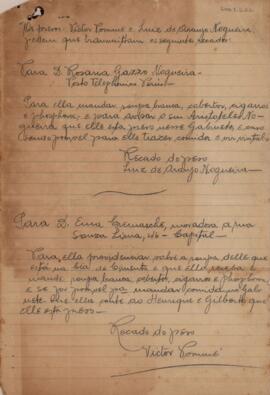 Os presos: Victor Pommé e Luiz de Araujo Nogueira,
pedem que transmittam os seguintes recados:
Para D. Rosaria Gazzo Nogueira -
Posto Telephonico
Para ella mandar roupa branca, cobertor, cigarros
e phosphoros e para avisar o seu Aristoteles No-
gueira que elle está preso neste Gabinete e caso
possivel para elle trazer comida e
Recado do preso
Luiz de Araujo Nogueira -
Para D. Ema moradora a rua
Souza Lima, - Capital -
Para ella providenciar sobre a roupa delle que
está na e que ella
mande roupa branca, coberta, cigarros e phosphoros
e se for possivel para mandar comida no Gabi-
nete. Que ella conte ao Henrique e Gilberto que
elle está preso -
Recado do preso
Victor Pommé